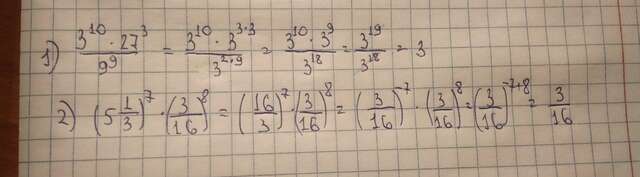 1) \frac{3^{10} \cdot 27^3}{9^9} = \frac{3^{10} \cdot 3^{3 \cdot 3}}{3^{2 \cdot 9}} = \frac{3^{10} \cdot 3^9}{3^{18}} = \frac{3^{19}}{3^{18}} = 3
2) (5\frac{1}{3})^7 \cdot (\frac{3}{16})^8 = (\frac{16}{3})^7 \cdot (\frac{3}{16})^8 = (\frac{3}{16})^{-7} \cdot (\frac{3}{16})^8 = (\frac{3}{16})^{-7+8} = \frac{3}{16}